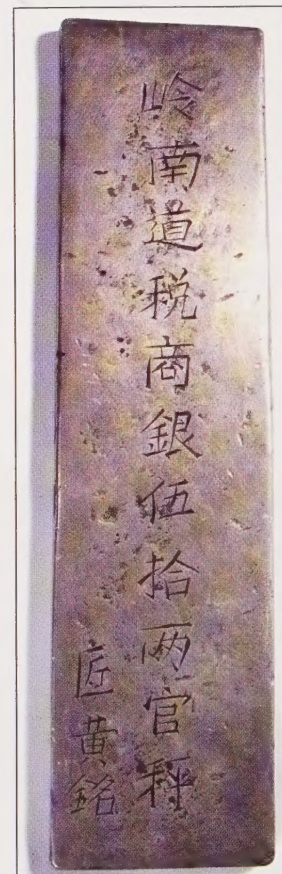 岭南道税商銀伍拾两官秤
匠黄銘